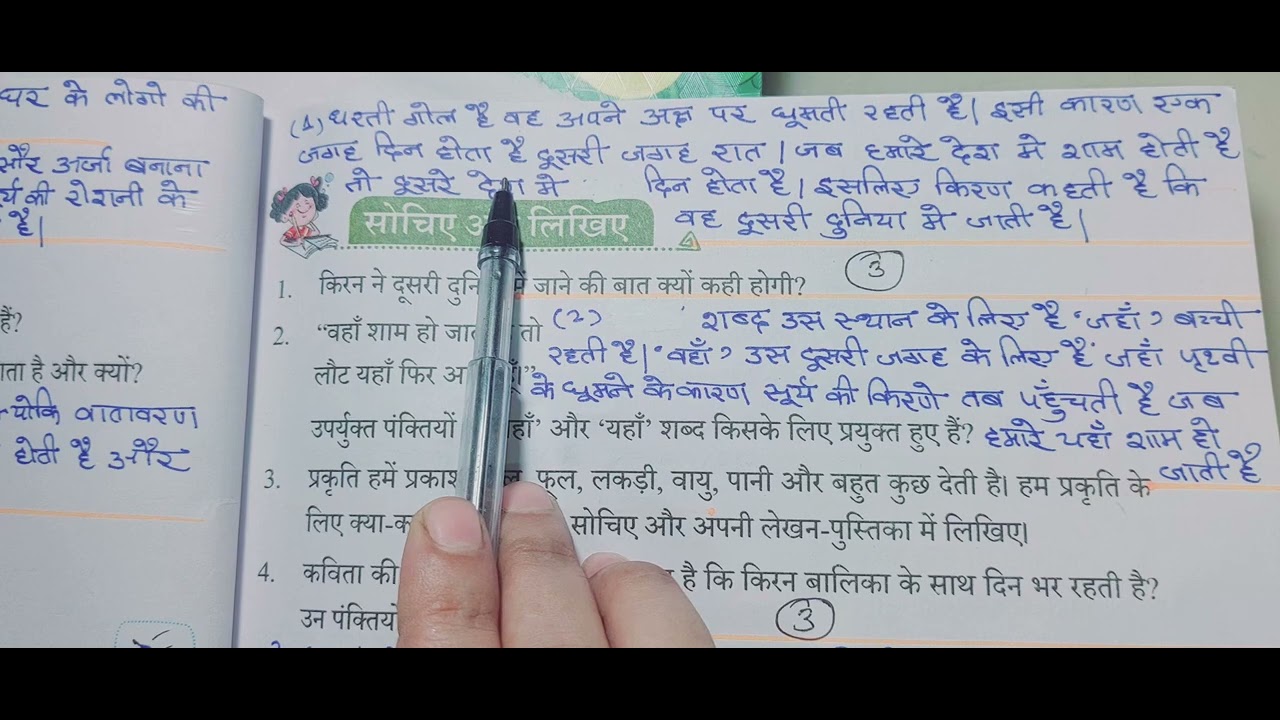 घर के लोगो की
सौर ऊर्जा बनाना
की रोशनी के
है।
हैं?
है और क्यों?
वातावरण
होती है और
(1) धरती गोल है वह अपने अक्ष पर घूमती रहती है। इसी कारण एक
जगह दिन होता है दूसरी जगह रात । जब हमारे देश मे शाम होती है
तो दूसरे देश मे दिन होता है। इसलिए किरण कहती है कि
वह दूसरी दुनिया मे जाती है।
सोचिए लिखिए
3
1. किरन ने दूसरी में जाने की बात क्यों कही होगी?
2. “वहाँ शाम हो तो
(2) शब्द उस स्थान के लिए है 'जहाँ' बच्ची
रहती है। 'वहाँ' उस दूसरी जगह के लिए है जहाँ पृथ्वी
लौट यहाँ फिर
के घूमने के कारण सूर्य की किरणे तब पहुँचती है जब
उपर्युक्त पंक्तियों और ‘यहाँ’ शब्द किसके लिए प्रयुक्त हुए हैं? हमारे यहाँ शाम हो
जाती है
3. प्रकृति हमें प्रकाश फूल, लकड़ी, वायु, पानी और बहुत कुछ देती है। हम प्रकृति के
लिए सोचिए और अपनी लेखन-पुस्तिका में लिखिए।
4. कविता की है कि किरन बालिका के साथ दिन भर रहती है?
उन
3